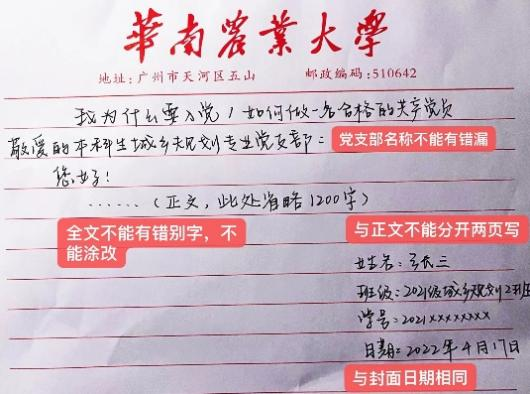 華南農業大學
地址:广州市天河区五山 邮政编码:510642
我为什么要入党/如何做一名合格的共产党员
敬爱的本科生城乡规划专业党支部:
党支部名称不能有错漏
您好!
......(正文,此处省略1200字)
全文不能有错别字,不能涂改
与正文不能分开两页写
姓名:张三
班级:2021级城乡规划2班
学号:2021xxxxxxxx
日期:2022年4月17日
与封面日期相同